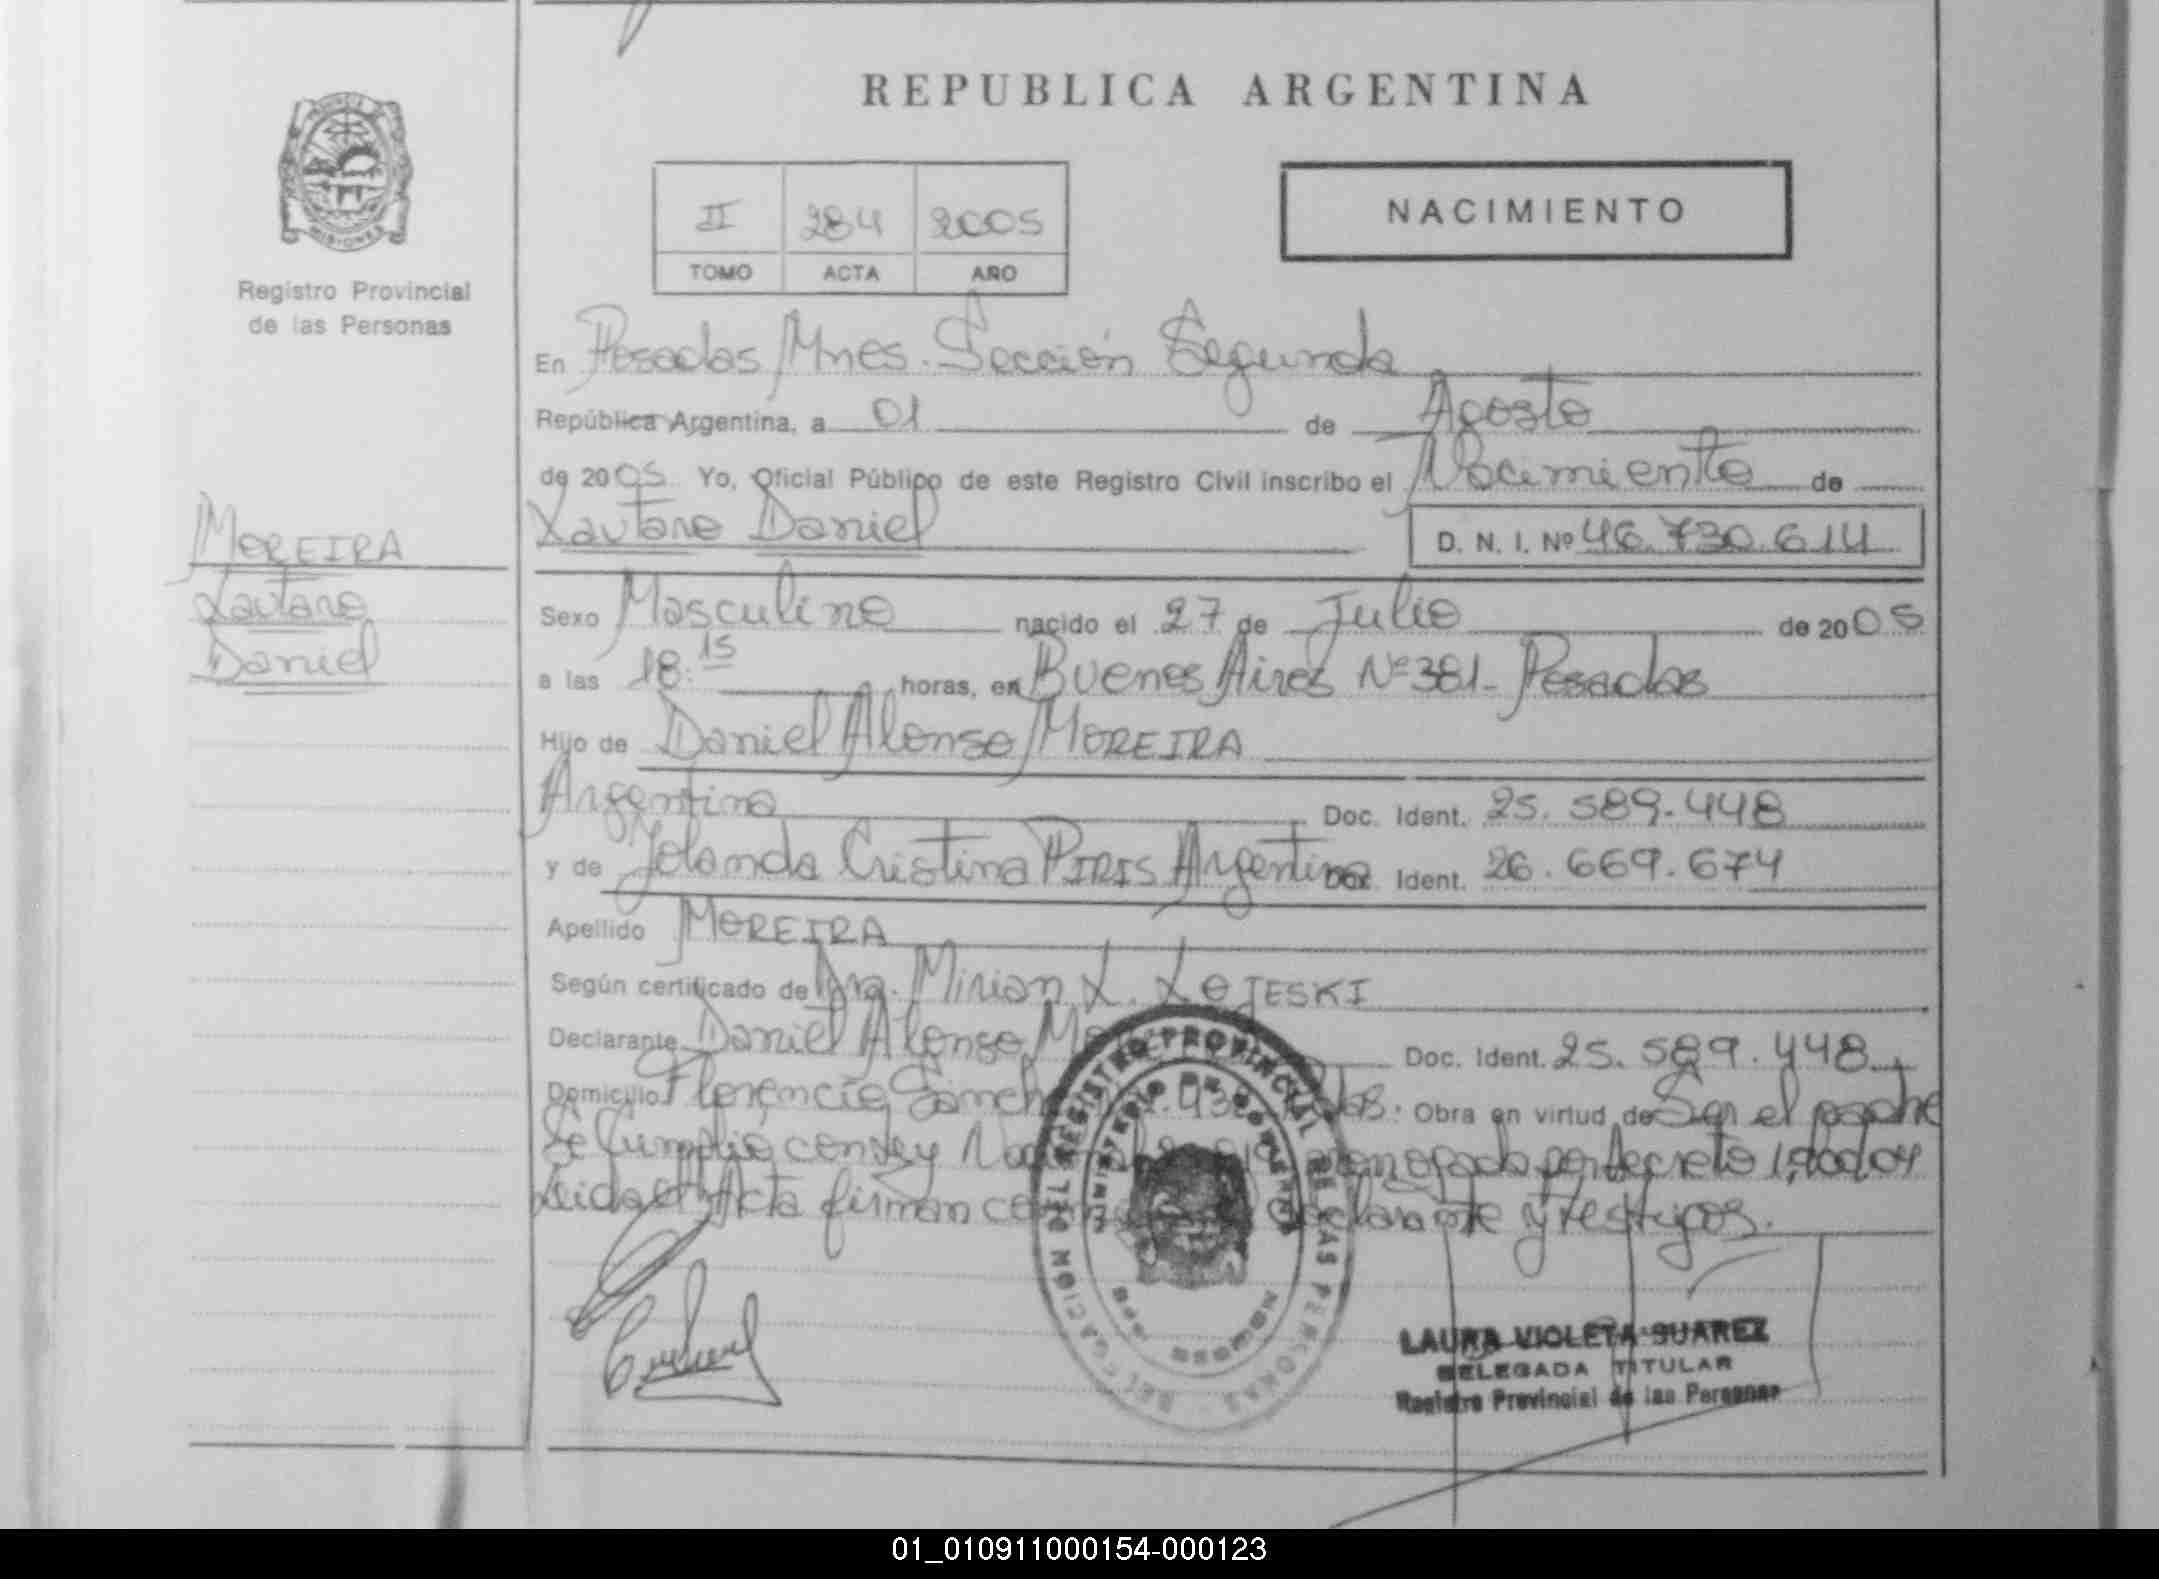 REPUBLICA ARGENTINA
MISIONES
Registro Provincial
de las Personas
II 284 2005
TOMO ACTA AÑO
NACIMIENTO
En Posadas Mnes. Sección Segunda
República Argentina, a 01 de Agosto
de 2005 Yo, Oficial Público de este Registro Civil inscribo el Nacimiento de
Lautaro Daniel D. N. I. Nº 46.730.614
MOREIRA
Lautaro
Daniel
Sexo Masculino nacido el 27 de Julio de 2005
a las 18:15 horas, en Buenes Aires Nº 381- Posadas
Hijo de Daniel Alonso MOREIRA
Argentina Doc. Ident. 25.589.448
y de Yolanda Cristina PIRIS Argentina Doc. Ident. 26.669.674
Apellido MOREIRA
Según certificado de Mirian L. LOJESKI
Declarante Daniel Alonso Doc. Ident. 25.589.448
Domicilio Florencio Obra en virtud de Ser el padre
Se Cumplió con Ley por decreto
Leida el Acta firman declarante y testigos.
DELEGACION DEL REGISTRO PROVINCIAL DE LAS PERSONAS
MINISTERIO DE GOBIERNO
LAURA VIOLETA SUAREZ
DELEGADA TITULAR
Registro Provincial de las Personas
01_010911000154-000123